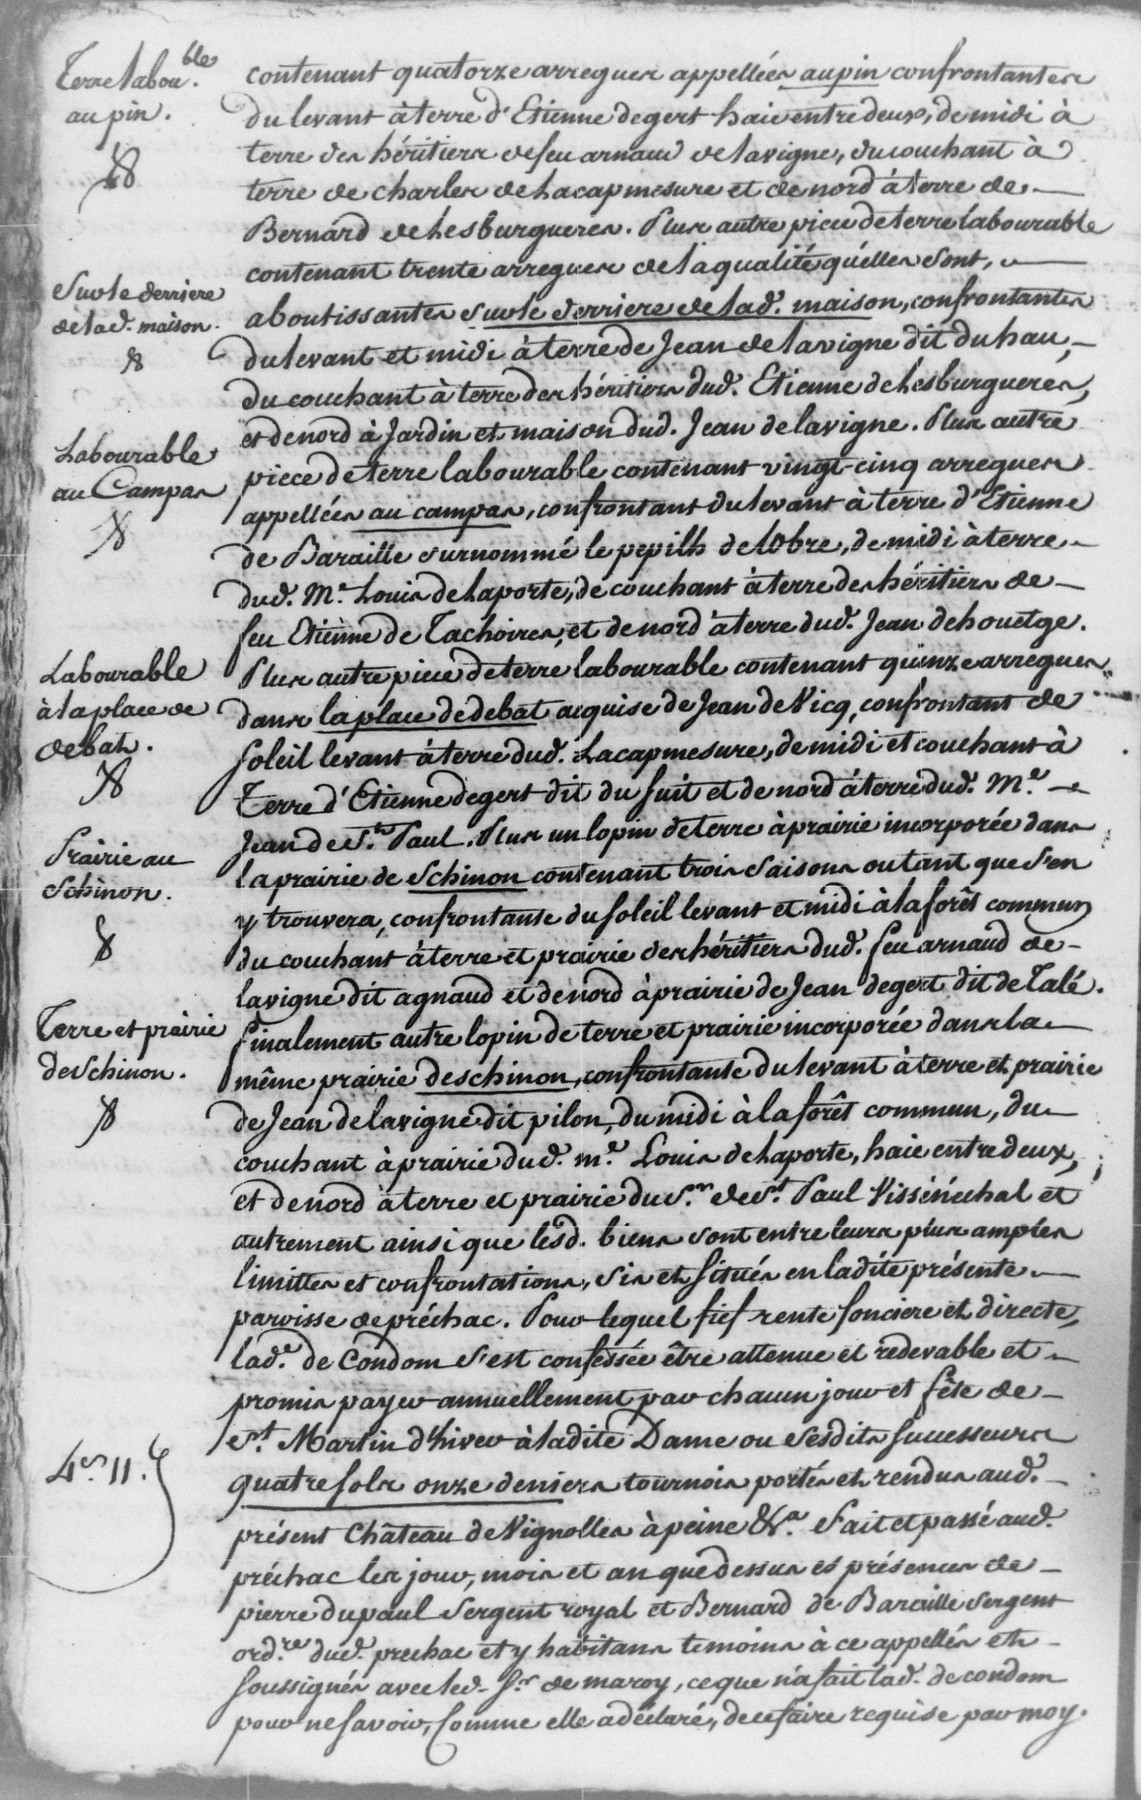 Terre labou.ble
au pin.
contenant quatorze arregues appellées au pin confrontantes
du levant à terre d'Etienne degert haie entre deux, de midi à
terre des héritiers de feu arnaud delavigne, du couchant à
terre de charles de Lacapmesure et de nord à terre de
Bernard de Lesburgueres. Plus autre piece de terre labourable
contenant trente arregues de la qualité qu'elles sont,
Sur le derriere
de lad. maison.
aboutissantes sur le derriere de lad. maison, confrontantes
du levant et midi à terre de Jean delavigne dit du hau,
du couchant à terre des héritiers dud. Etienne de Lesburgueres,
et de nord à Jardin et maison dud. Jean delavigne. Plus autre
Labourable
au Campas
piece de terre labourable contenant vingt-cinq arregues
appellées au campas, confrontant du levant à terre d'Etienne
de Baraille surnommé le pepilh de lobre, de midi à terre
dud. Me. Louis de Laporte, de couchant à terre des héritiers de
feu Etiènne de Tachoires, et de nord à terre dud. Jean dehouetge.
Labourable
à la place de
debat.
Plus autre piece de terre labourable contenant quinze arregues
dans la place de debat acquise de Jean de Vicq, confrontant de
soleil levant à terre dud. Lacapmesure, de midi et couchant à
Terre d'Etienne degert dit du fuit et de nord à terre dud. Me.
Jean de St. Paul. Plus un lopin de terre à prairie incorporée dans
Prairie au
Schinon.
la prairie de Schinon contenant trois saisons ou tant que s'en
y trouvera, confrontante du soleil levant et midi à la forêt commun
du couchant à terre et prairie des héritiers dud. feu arnaud de
lavigne dit agnaud et de nord à prairie de Jean degert dit de Talé.
Terre et prairie
de Schinon.
finalement autre lopin de terre et prairie incorporée dans la
même prairie deschinon, confrontante du levant à terre et prairie
de Jean delavigne dit pilon, du midi à la forêt commun, du
couchant à prairie dud. me. Louis de Laporte, haie entre deux,
et de nord à terre et prairie du Sr. de St. Paul Vissénéchal et
autrement ainsi que lesd. biens sont entre leurs plus amples
limittes et confrontations, sis et situés en ladite présente
paroisse de préchac. Pour lequel fief rente fonciere et directe,
lade. de Condom s'est confessée être attenue et redevable et
promis payer annuellement par chacun jour et fête de
St. Martin d'hiver à ladite Dame ou sesdits successeurs
4s 11.
quatre sols onze deniers tournois portés et rendus aud.
présent Château de Vignolles à peine &a. Fait et passé aud.
préchac les jour, mois et an que dessus es présences de
pierre dupaul Sergent royal et Bernard de Baraille Sergent
ordre. dud. prechac et y habitans temoins à ce appellés et
soussignés avec led. Sr. de maroy, ce que n'a fait lad. de condom
pour ne savoir, comme elle a déclaré, de ce faire requise par moy.